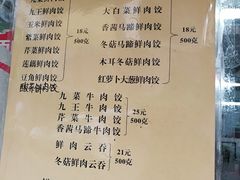 九菜鲜肉饺
九王鲜肉饺
玉米鲜肉饺
紫菜鲜肉饺
芹菜鲜肉饺
莲藕鲜肉饺
豆角鲜肉饺
18元
500克
大白菜鲜肉饺
香茜马蹄鲜肉饺
冬菇马蹄鲜肉饺
木耳冬菇鲜肉饺
红萝卜大葱鲜肉饺
18元
500克
九菜牛肉饺
九王牛肉饺
芹菜牛肉饺
香茜马蹄牛肉饺
25元
500克
鲜肉云吞
冬菇鲜肉云吞
21元
500克